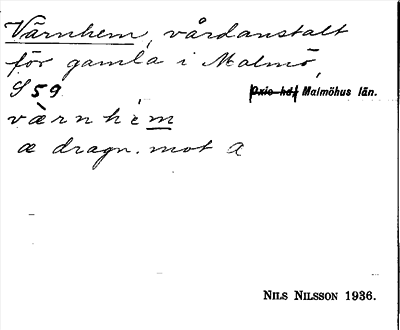 Värnhem, vårdanstalt
för gamla i Malmö,
S 59 Oxie hd, Malmöhus län.
værnhèm
æ dragn. mot a
NILS NILSSON 1936.